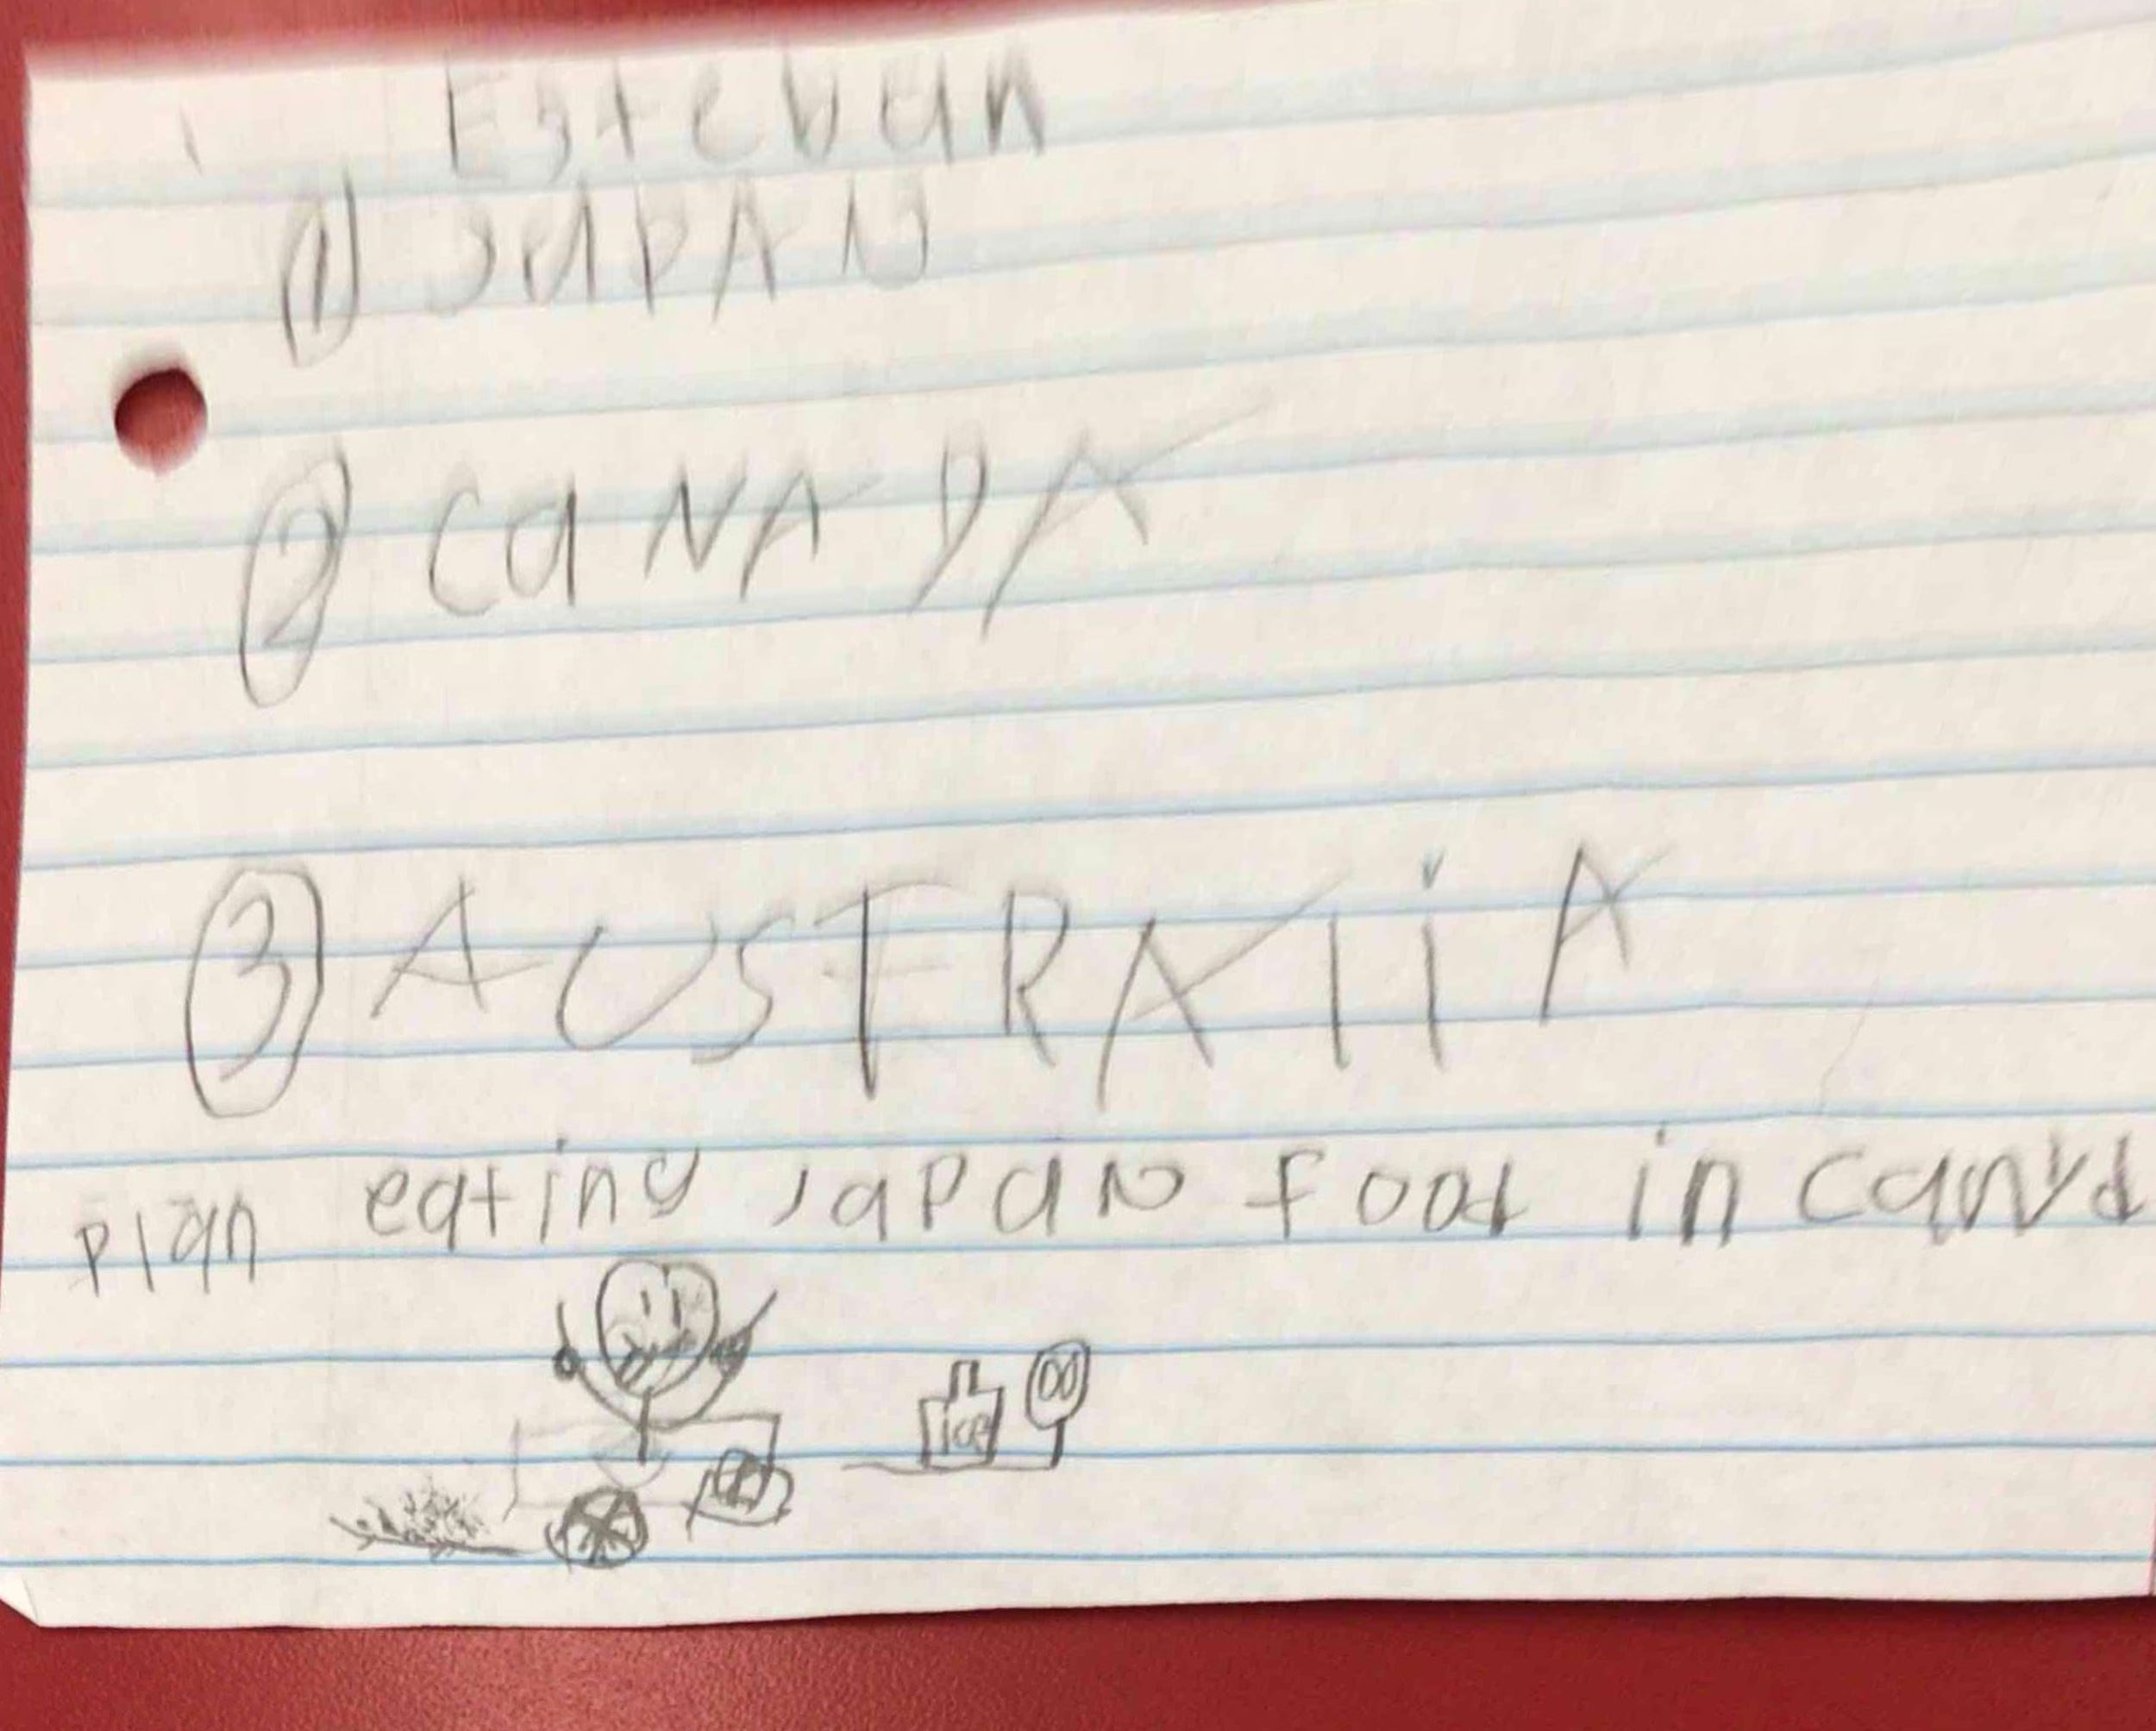 Esteban
① JaPAN
② CaNADA
③ AUSTRAliA
plan eating Japan food in canad
ice